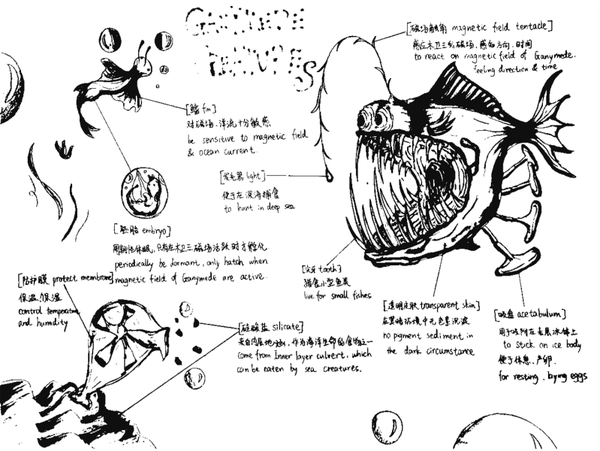 GANYMEDE
[磁场触角 magnetic field tentacle]
感应木卫三的磁场，感知方向，时间
to react on magnetic field of Ganymede.
feeling direction & time
[鳍 fin]
对磁场、洋流十分敏感
be sensitive to magnetic field
& ocean current.
light]
便于在深海捕食
to hunt in deep sea
[胚胎 embryo]
周期性休眠，只有在木卫三磁场活跃时才孵化
periodically be dormant, only hatch when
magnetic field of Ganymede are active.
[防护膜 protect membrane]
保温，保湿
control temperature
and humidity
[硅酸盐 silicate]
come from Inner layer culvert, which
can be eaten by sea creatures.
tooth]
捕食小型鱼类
live for small fishes
[透明皮肤 transparent skin]
在黑暗环境中无色素沉淀
no pgment sediment, in
the dark circumstance
[吸盘 acetabulum]
用于吸附在表冰体上
to stick on ice body
便于休息，产卵
for resting, bying eggs